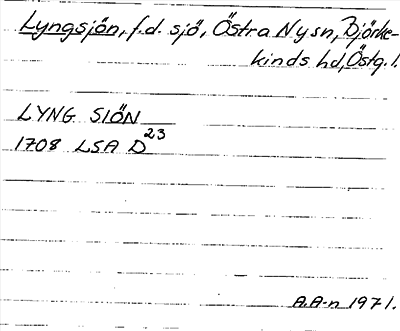 Lyngsjön, f.d. sjö, Östra Ny sn, Björke-
kinds hd, Östg. l.
LYNG SIÖN
1708 LSA D 23
A.A-n 1971.